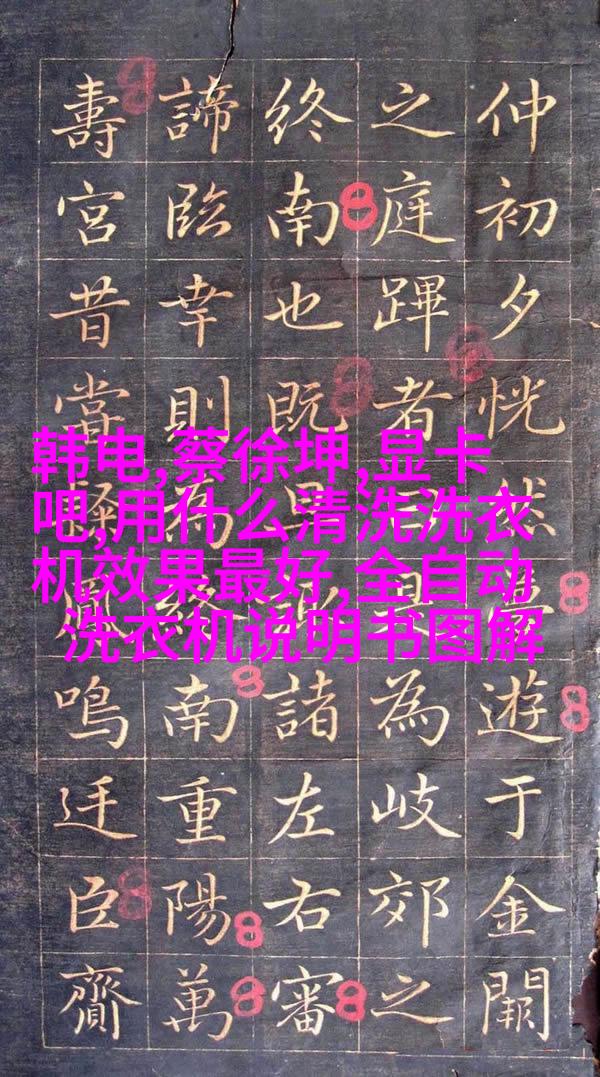 韩电,蔡徐坤,显卡
吧,用什么清洗洗衣
机效果最好,全自动
洗衣机说明书图解
仲初夕恍然遊于金闕
之庭蹕者為岐郊之
終南也既諸左右審
諦臨幸則為終南重陽萬
壽宮昔當鳴迁臣齎